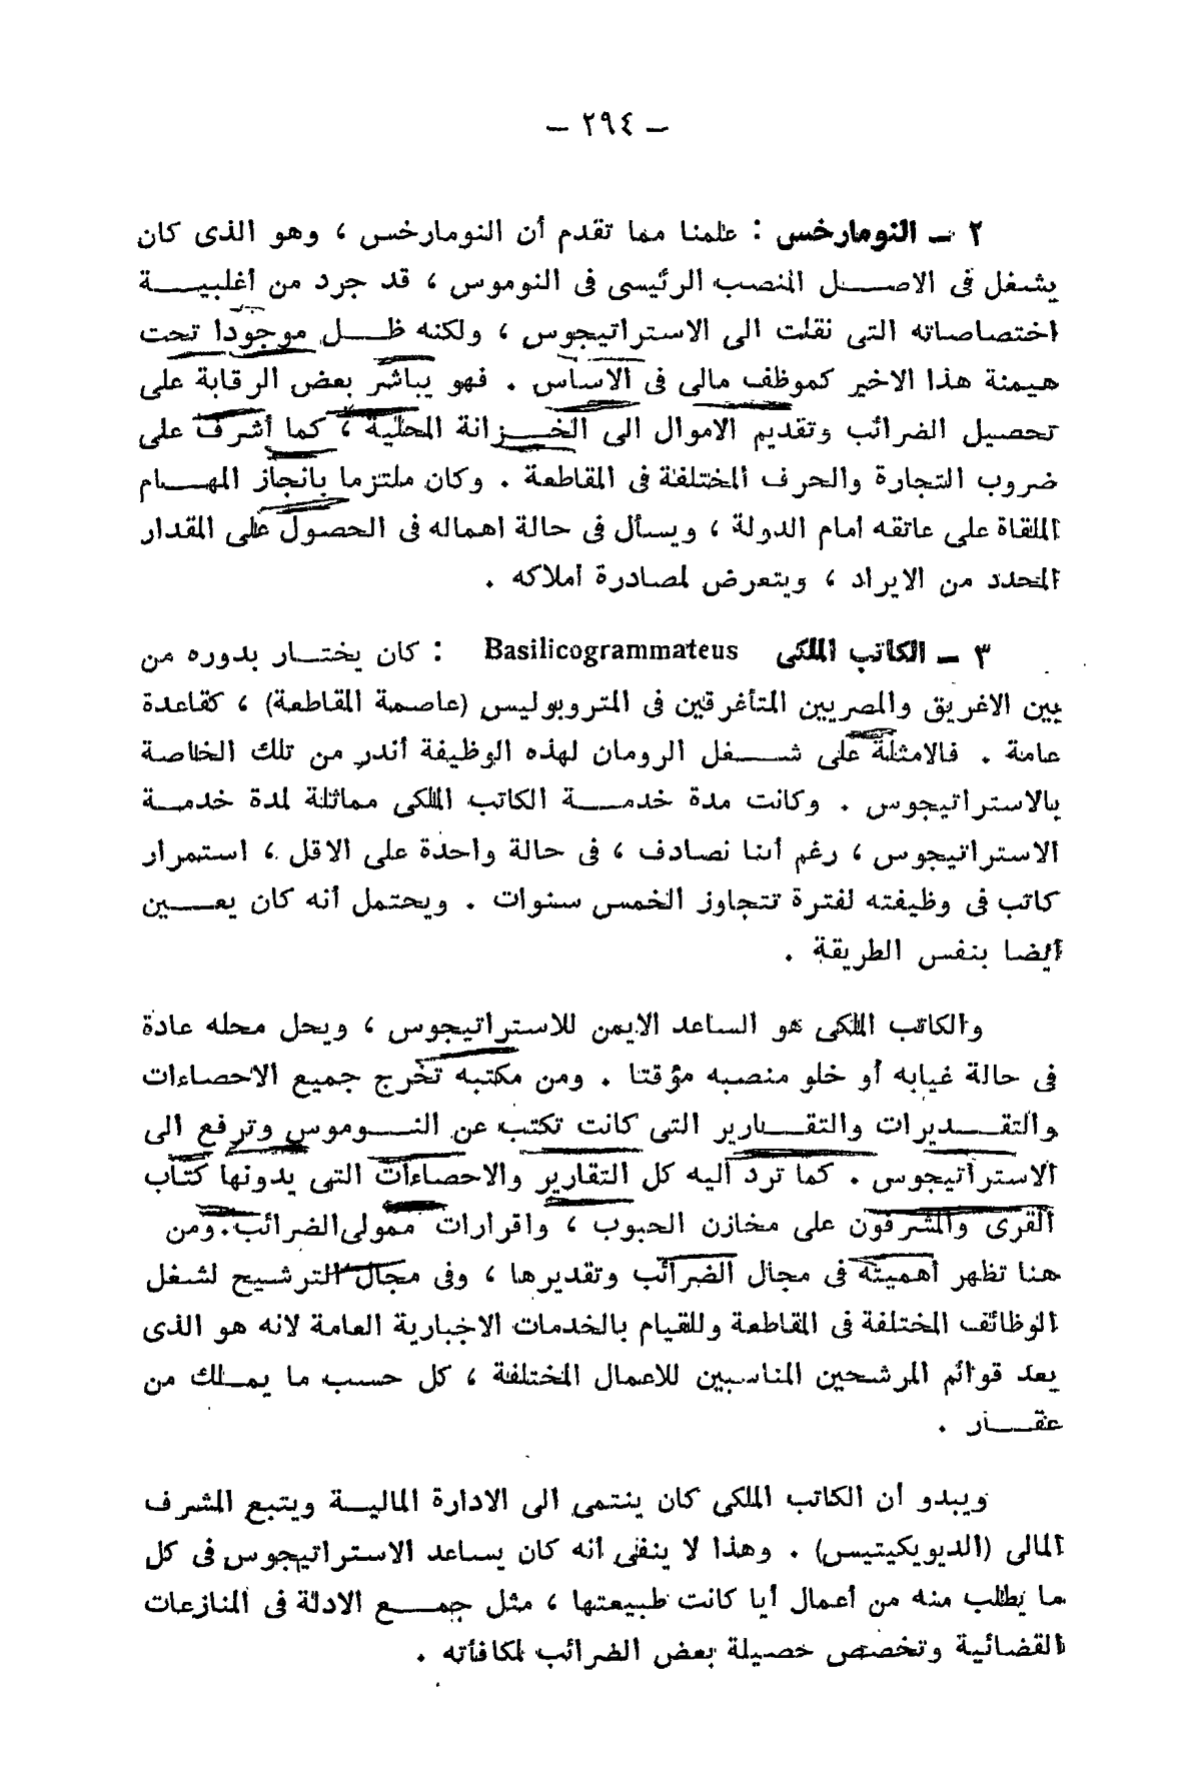 — ٢٩٤ —
٢ — النومارخس : علمنا مما تقدم أن النومارخس ، وهو الذى كان
يشغل فى الاصل المنصب الرئيسى فى النوموس ، قد جرد من أغلبية
اختصاصاته التى نقلت الى الاستراتيجوس ، ولكنه ظل موجودا تحت
هيمنة هذا الاخير كموظف مالى فى الاساس . فهو يباشر بعض الرقابة على
تحصيل الضرائب وتقديم الاموال الى الخزانة المحلية ، كما أشرف على
ضروب التجارة والحرف المختلفة فى المقاطعة . وكان ملتزما بانجاز المهام
الملقاة على عاتقه أمام الدولة ، ويسأل فى حالة اهماله فى الحصول على المقدار
المحدد من الايراد ، ويتعرض لمصادرة أملاكه .
٣ — الكاتب الملكى Basilicogrammateus : كان يختار بدوره من
بين الاغريق والمصريين المتأغرقين فى المتروبوليس (عاصمة المقاطعة) ، كقاعدة
عامة . فالامثلة على شغل الرومان لهذه الوظيفة أندر من تلك الخاصة
بالاستراتيجوس . وكانت مدة خدمة الكاتب الملكى مماثلة لمدة خدمة
الاستراتيجوس ، رغم أننا نصادف ، فى حالة واحدة على الاقل ، استمرار
كاتب فى وظيفته لفترة تتجاوز الخمس سنوات . ويحتمل أنه كان يعين
أيضا بنفس الطريقة .
والكاتب الملكى هو الساعد الايمن للاستراتيجوس ، ويحل محله عادة
فى حالة غيابه أو خلو منصبه مؤقتا . ومن مكتبه تخرج جميع الاحصاءات
والتقديرات والتقارير التى كانت تكتب عن النوموس وترفع الى
الاستراتيجوس . كما ترد اليه كل التقارير والاحصاءات التى يدونها كتاب
القرى والمشرفون على مخازن الحبوب ، واقرارات ممولى الضرائب . ومن
هنا تظهر أهميته فى مجال الضرائب وتقديرها ، وفى مجال الترشيح لشغل
الوظائف المختلفة فى المقاطعة وللقيام بالخدمات الاجبارية العامة لانه هو الذى
يعد قوائم المرشحين المناسبين للاعمال المختلفة ، كل حسب ما يملك من
عقار .
ويبدو أن الكاتب الملكى كان ينتمى الى الادارة المالية ويتبع المشرف
المالى (الديويكيتيس) . وهذا لا ينفى أنه كان يساعد الاستراتيجوس فى كل
ما يطلب منه من أعمال أيا كانت طبيعتها ، مثل جمع الادلة فى المنازعات
القضائية وتخصص حصيلة بعض الضرائب لمكافأته .